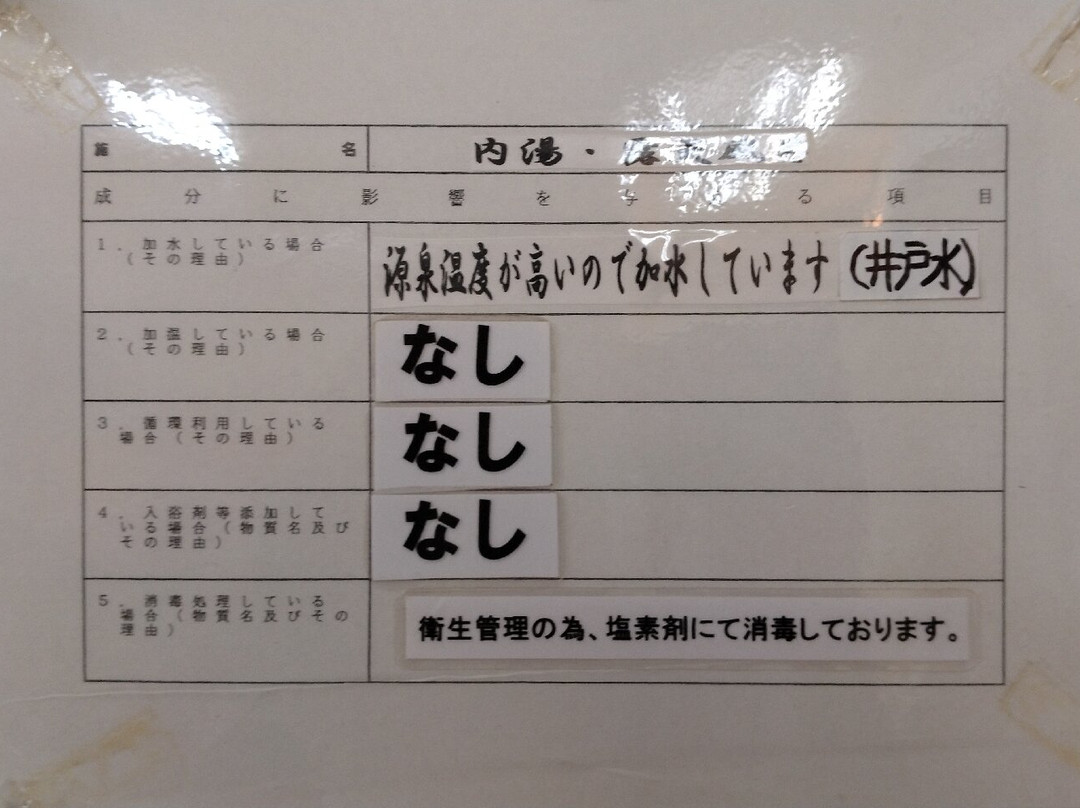 施 名
内湯・
成分に影響を与える項目
1. 加水している場合
(その理由)
源泉温度が高いので加水しています (井戸水)
2. 加温している場合
(その理由)
なし
3. 循環利用している
場合(その理由)
なし
4. 入浴剤等添加して
いる場合(物質名及び
その理由)
なし
5. 消毒処理している
場合(物質名及びその
理由)
衛生管理の為、塩素剤にて消毒しております。